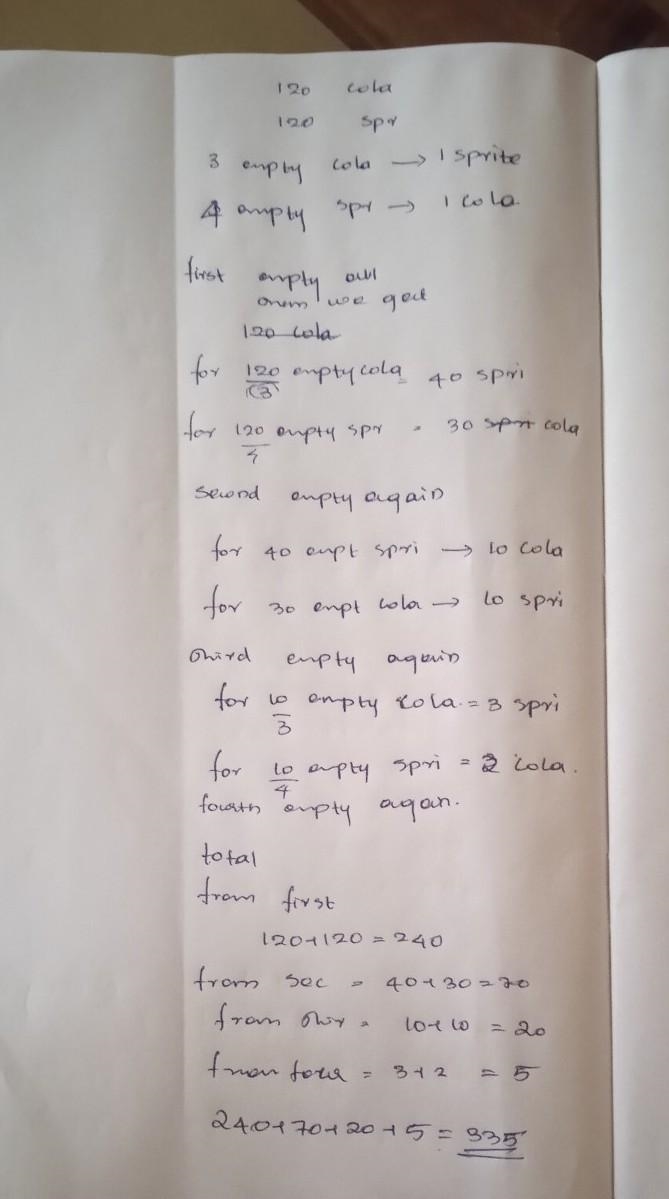 120 cola
120 spr
3 empty cola → 1 sprite
4 empty spr → 1 cola
first empty all
we get
120 cola
for 120/3 empty cola = 40 spri
for 120/4 empty spr = 30 spri cola
second empty again
for 40 empt spri → 10 cola
for 30 empt cola → 10 spri
third empty again
for 10/3 empty cola = 3 spri
for 10/4 empty spri = 2 cola.
fourth empty again.
total
from first
120+120 = 240
from sec = 40+30=70
from thir = 10+10 = 20
from four = 3+2 = 5
240+70+20+5 = 335